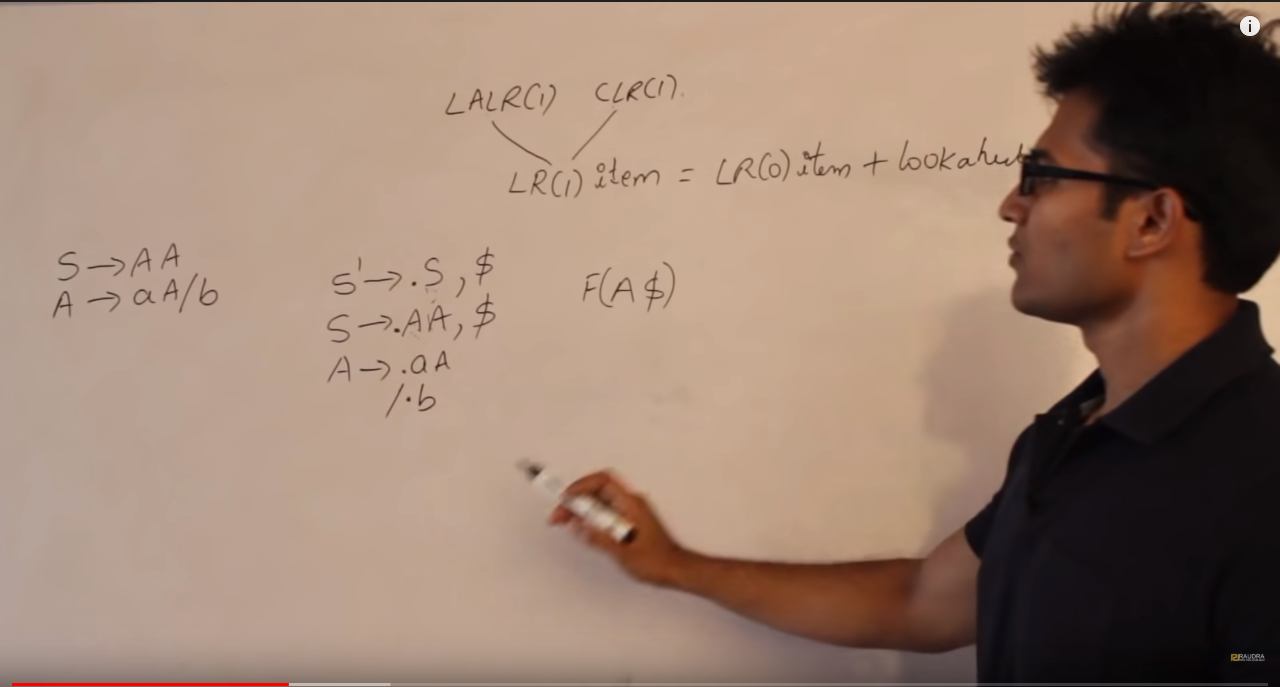 LALR(1) CLR(1).
LR(1) item = LR(0) item + lookahead
S→AA
A→aA/b
S'→.S,$
S→.AA,$
A→.aA
/.b
F(A$)
i
RAUDRA